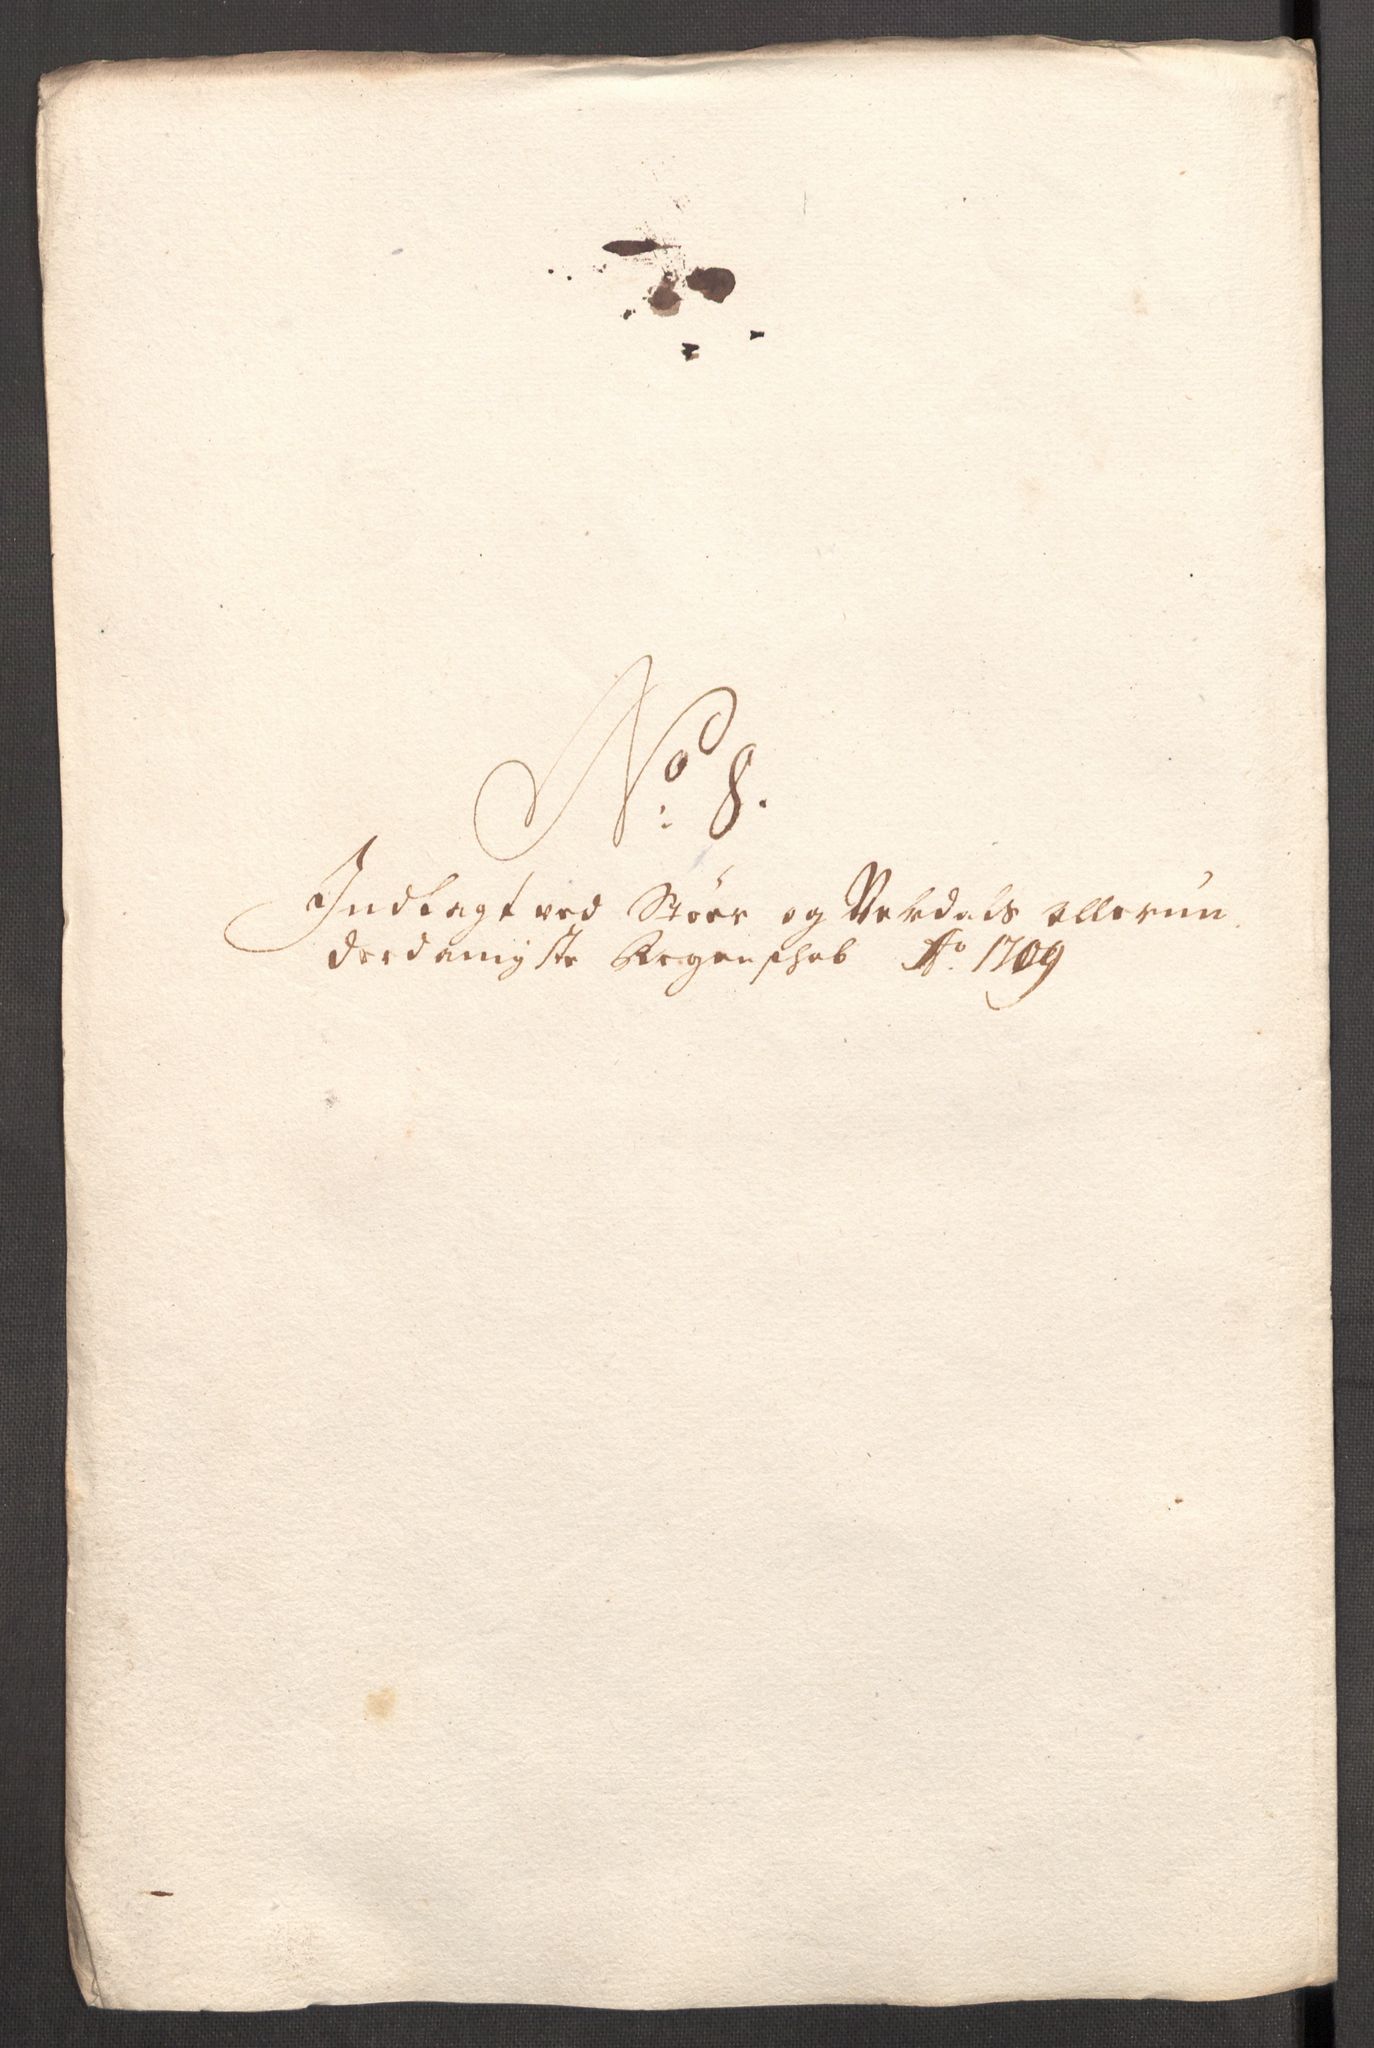 No. 8.
Indlagt ved Støer og Verdals allerun
derdanigste Regenschab Ao. 1709